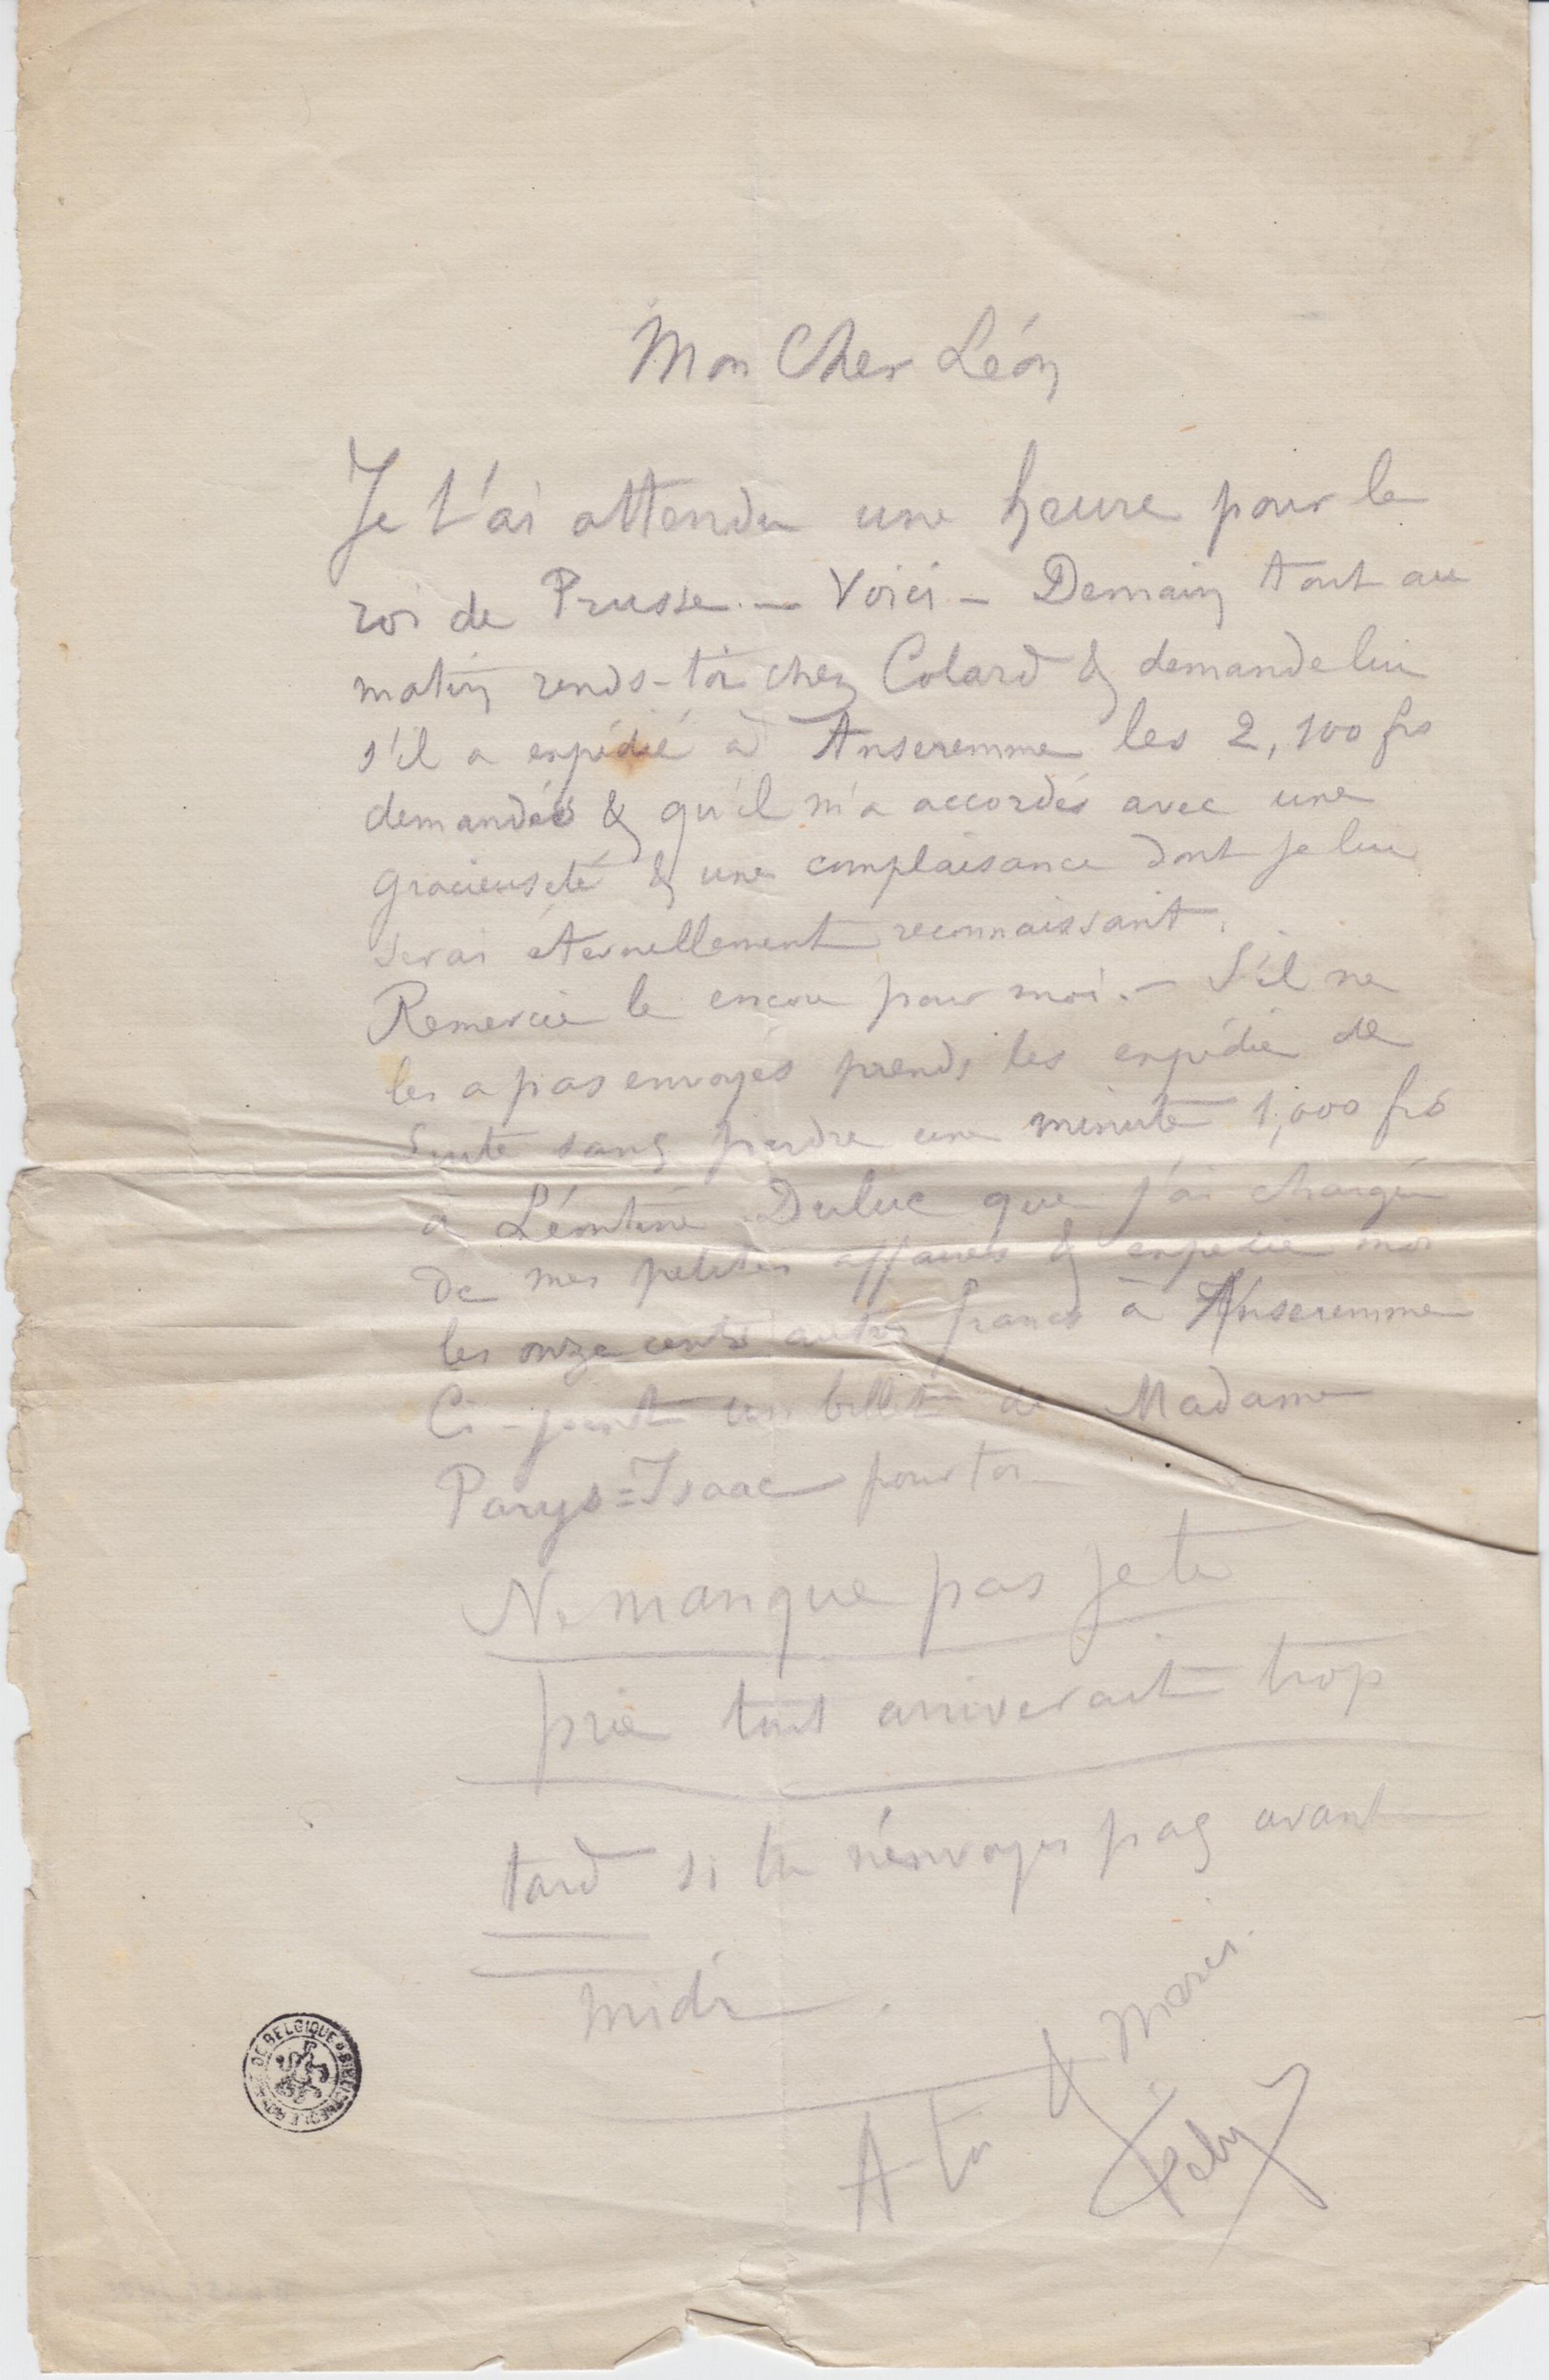 Mon Cher Léon
Je t'ai attendu une heure pour le
roi de Prusse. — Voici — Demain tout au
matin rends-toi chez Colard & demande lui
s'il a expédié à Anseremme les 2,100 frs
demandés & qu'il m'a accordés avec une
gracieuseté & une complaisance dont je lui
serai éternellement reconnaissant.
Remercie le encore pour moi. — S'il ne
les a pas envoyés prends les expédie de
suite sans perdre une minute 1,000 frs
à Léontine Duluc que j'ai chargée
de mes petites affaires & expédie moi
les onze cents autres francs à Anseremme
Ci-joint un billet de Madame
Parys=Isaac pour toi
Ne manque pas je te
prie tout arriverait trop
tard si tu n'envoyes pas avant
midi.
A toi & merci.
Fély
DE BELGIQUE